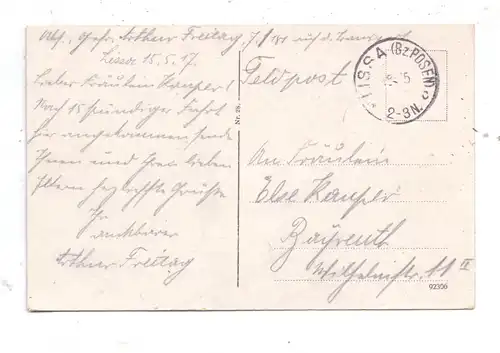 Abs. Gefr. Arthur Freitag,
Lissa 15.5.17.
Liebes Fräulein Kauper!
Nach 15 stündiger Fahrt
hier angekommen sende
Ihnen und Ihren lieben
Eltern herzlichste Grüße
Ihr
dankbarer
Arthur Freitag
Feldpost
LISSA (Bz. POSEN)
2-3N.
An Fräulein
Else Kauper
Bayreuth
Wilhelmstr. 11 II
92306